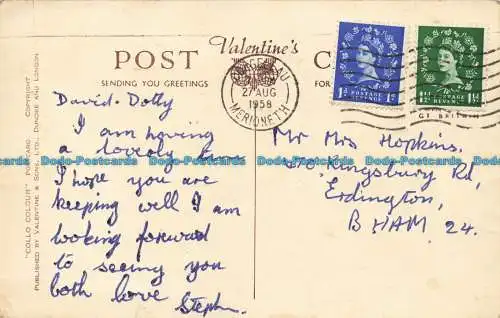 POST
Valentine's
SENDING YOU GREETINGS
27 AUG
1958
MERIONETH
1D POSTAGE REVENUE 1D
David - Dolly
I am having
a lovely
I hope you are
keeping well I am
looking forward
to seeing you
both love Steph
Mr Mrs Hopkins.
Kingsbury Rd,
Erdington,
B'HAM. 24.
"COLLO COLOUR" POST CARD COPYRIGHT
PUBLISHED BY VALENTINE & SONS, LTD., DUNDEE AND LONDON
Dodo-Postcards Dodo-Postcards Dodo-Postcards Dodo-Postcards